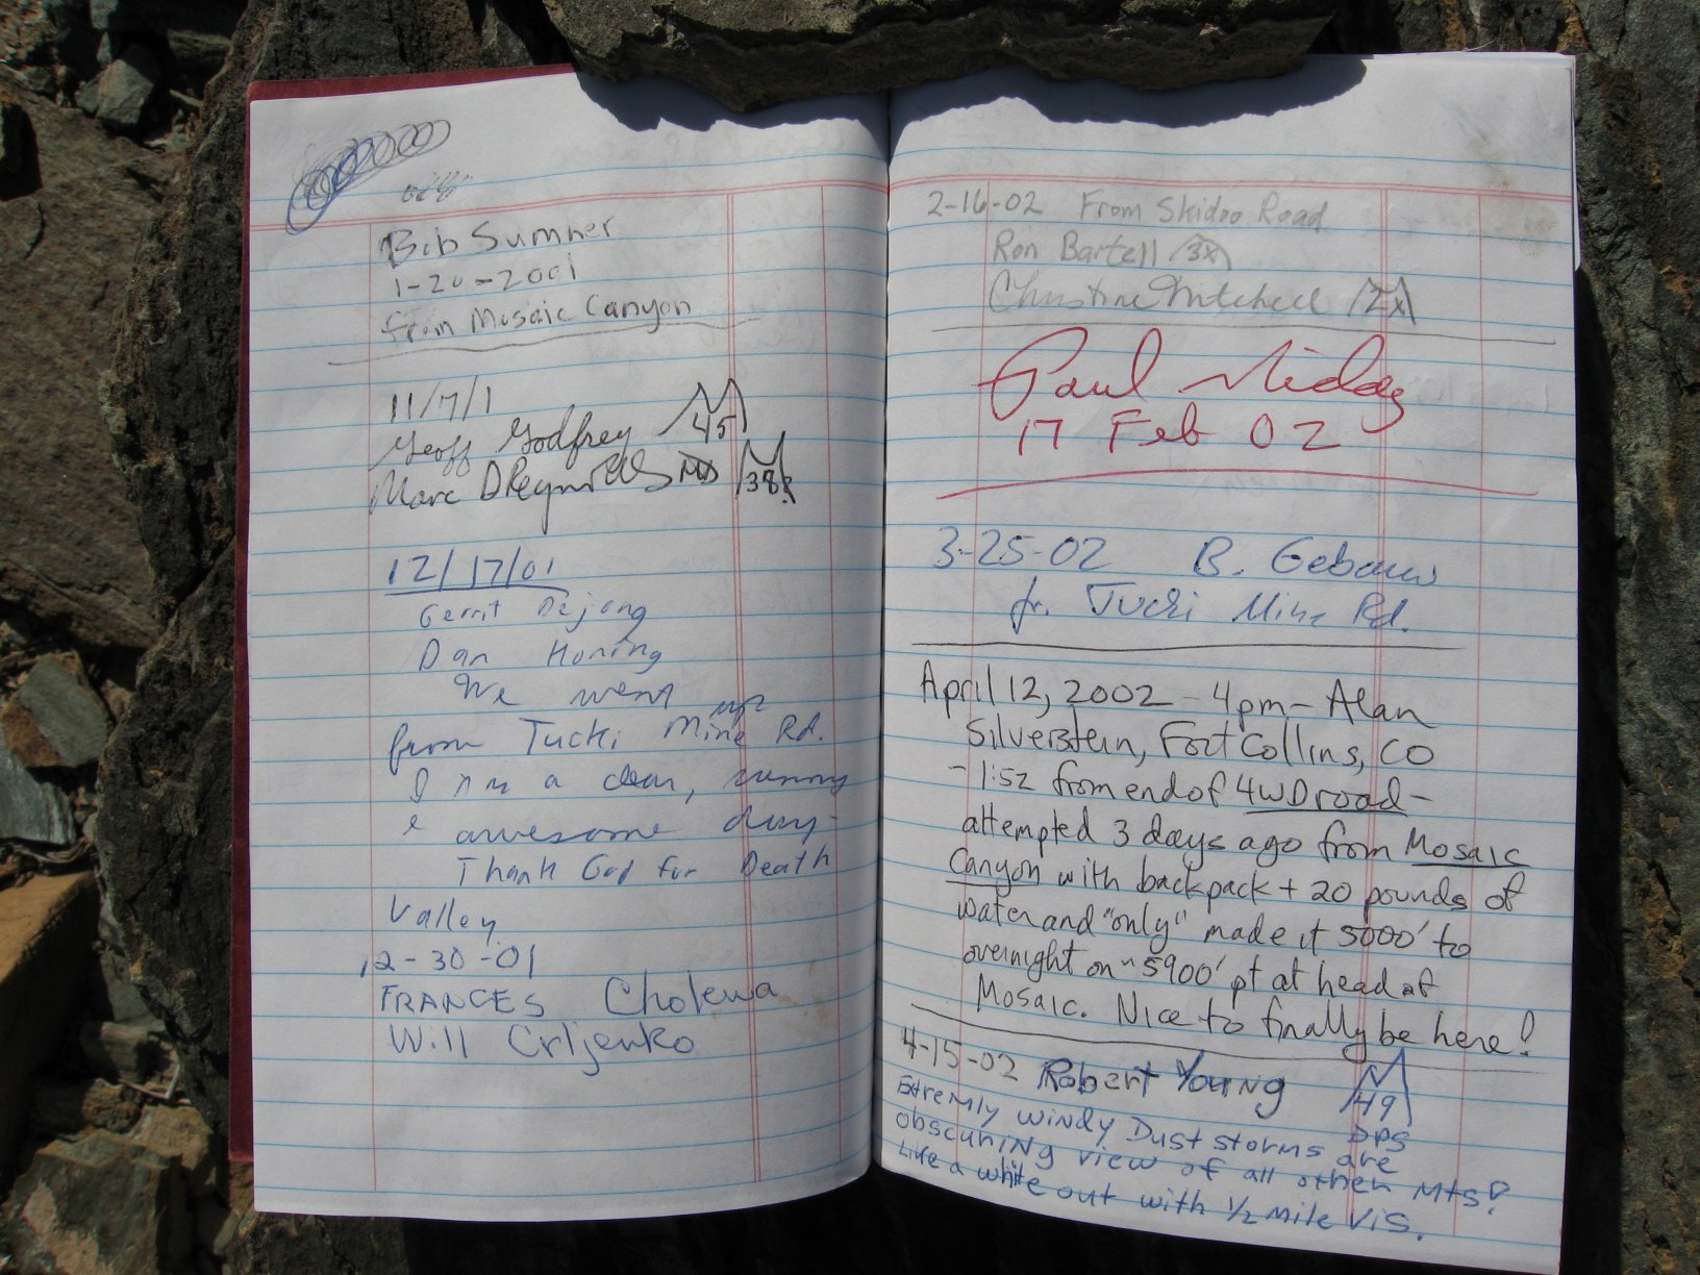 Bob Sumner
1-20-2001
from Mosaic Canyon
11/7/1
Geoff Godfrey 45
Marc D Reynolds MD 38?
12/17/01
Gerrit Dejong
Dan Honing
We went up
from Tucki Mine Rd.
a clear, sunny
awesome day-
Thank God for Death
Valley
12-30-01
FRANCES Cholewa
Will Crljenko
2-16-02 From Skidoo Road
Ron Bartell 3x
Christine Mitchell 2x
Paul
17 Feb 02
3-25-02 B.
fr. Tucki Mine Rd.
April 12, 2002 - 4pm - Alan
Silverstein, Fort Collins, CO
- 1:52 from end of 4WD road -
attempted 3 days ago from Mosaic
Canyon with backpack + 20 pounds of
water and "only" made it 5000' to
overnight on ~5900' pt at head of
Mosaic. Nice to finally be here!
4-15-02 Robert Young 49
DPS
Extremly windy Dust storms are
obscuring view of all other Mts!
Like a white out with 1/2 mile vis.